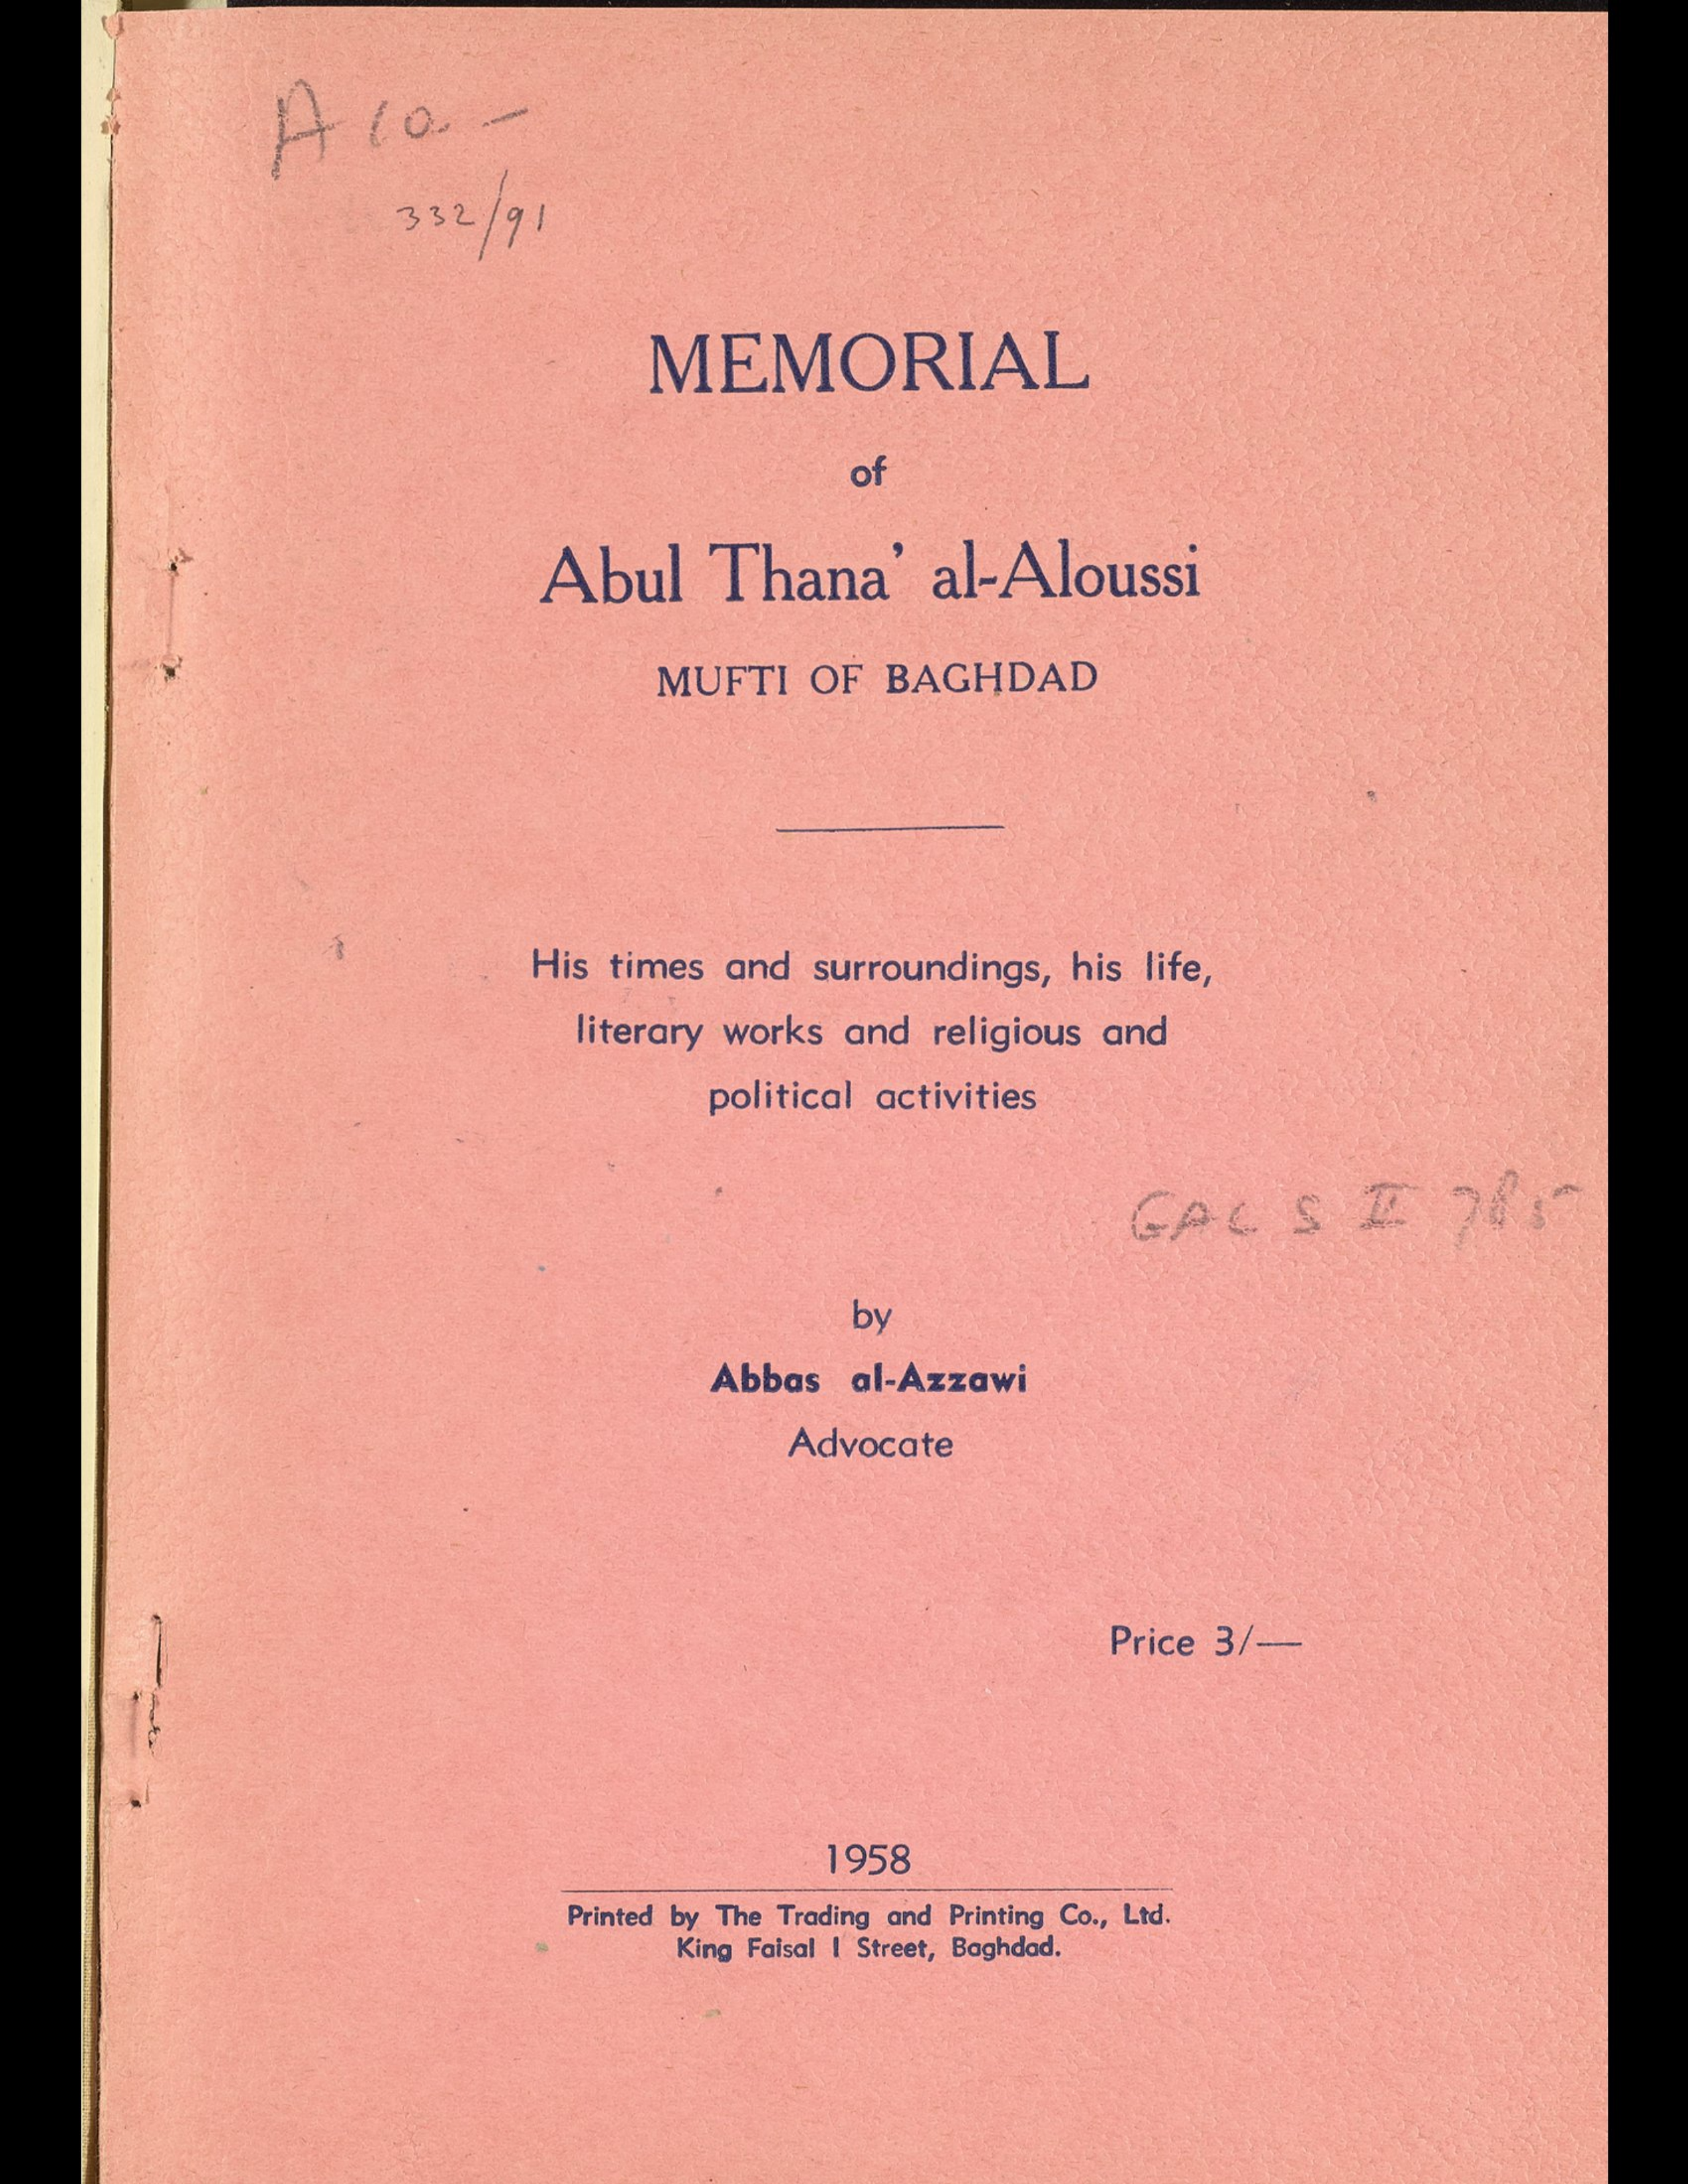 A 10. –
332/91
MEMORIAL
of
Abul Thana’ al-Aloussi
MUFTI OF BAGHDAD
His times and surroundings, his life,
literary works and religious and
political activities
GAL S II 785
by
Abbas al-Azzawi
Advocate
Price 3/—
1958
Printed by The Trading and Printing Co., Ltd.
King Faisal I Street, Baghdad.